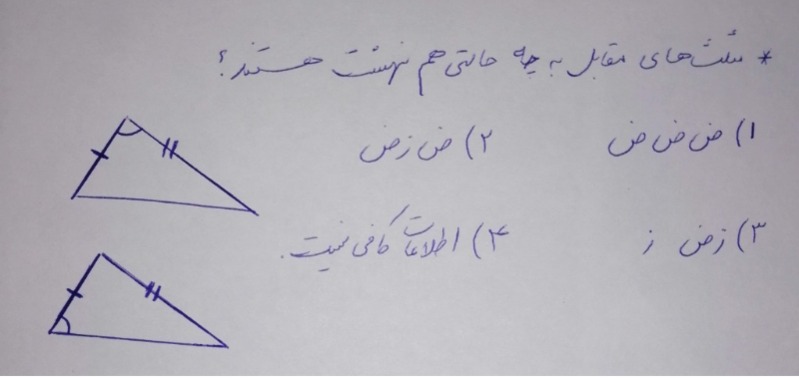 * مثلث‌های مقابل به چه حالتی هم نهشت هستند؟
۱) ض ض ض ۲) ض ز ض
۳) ز ض ز ۴) اطلاعات کافی نیست.